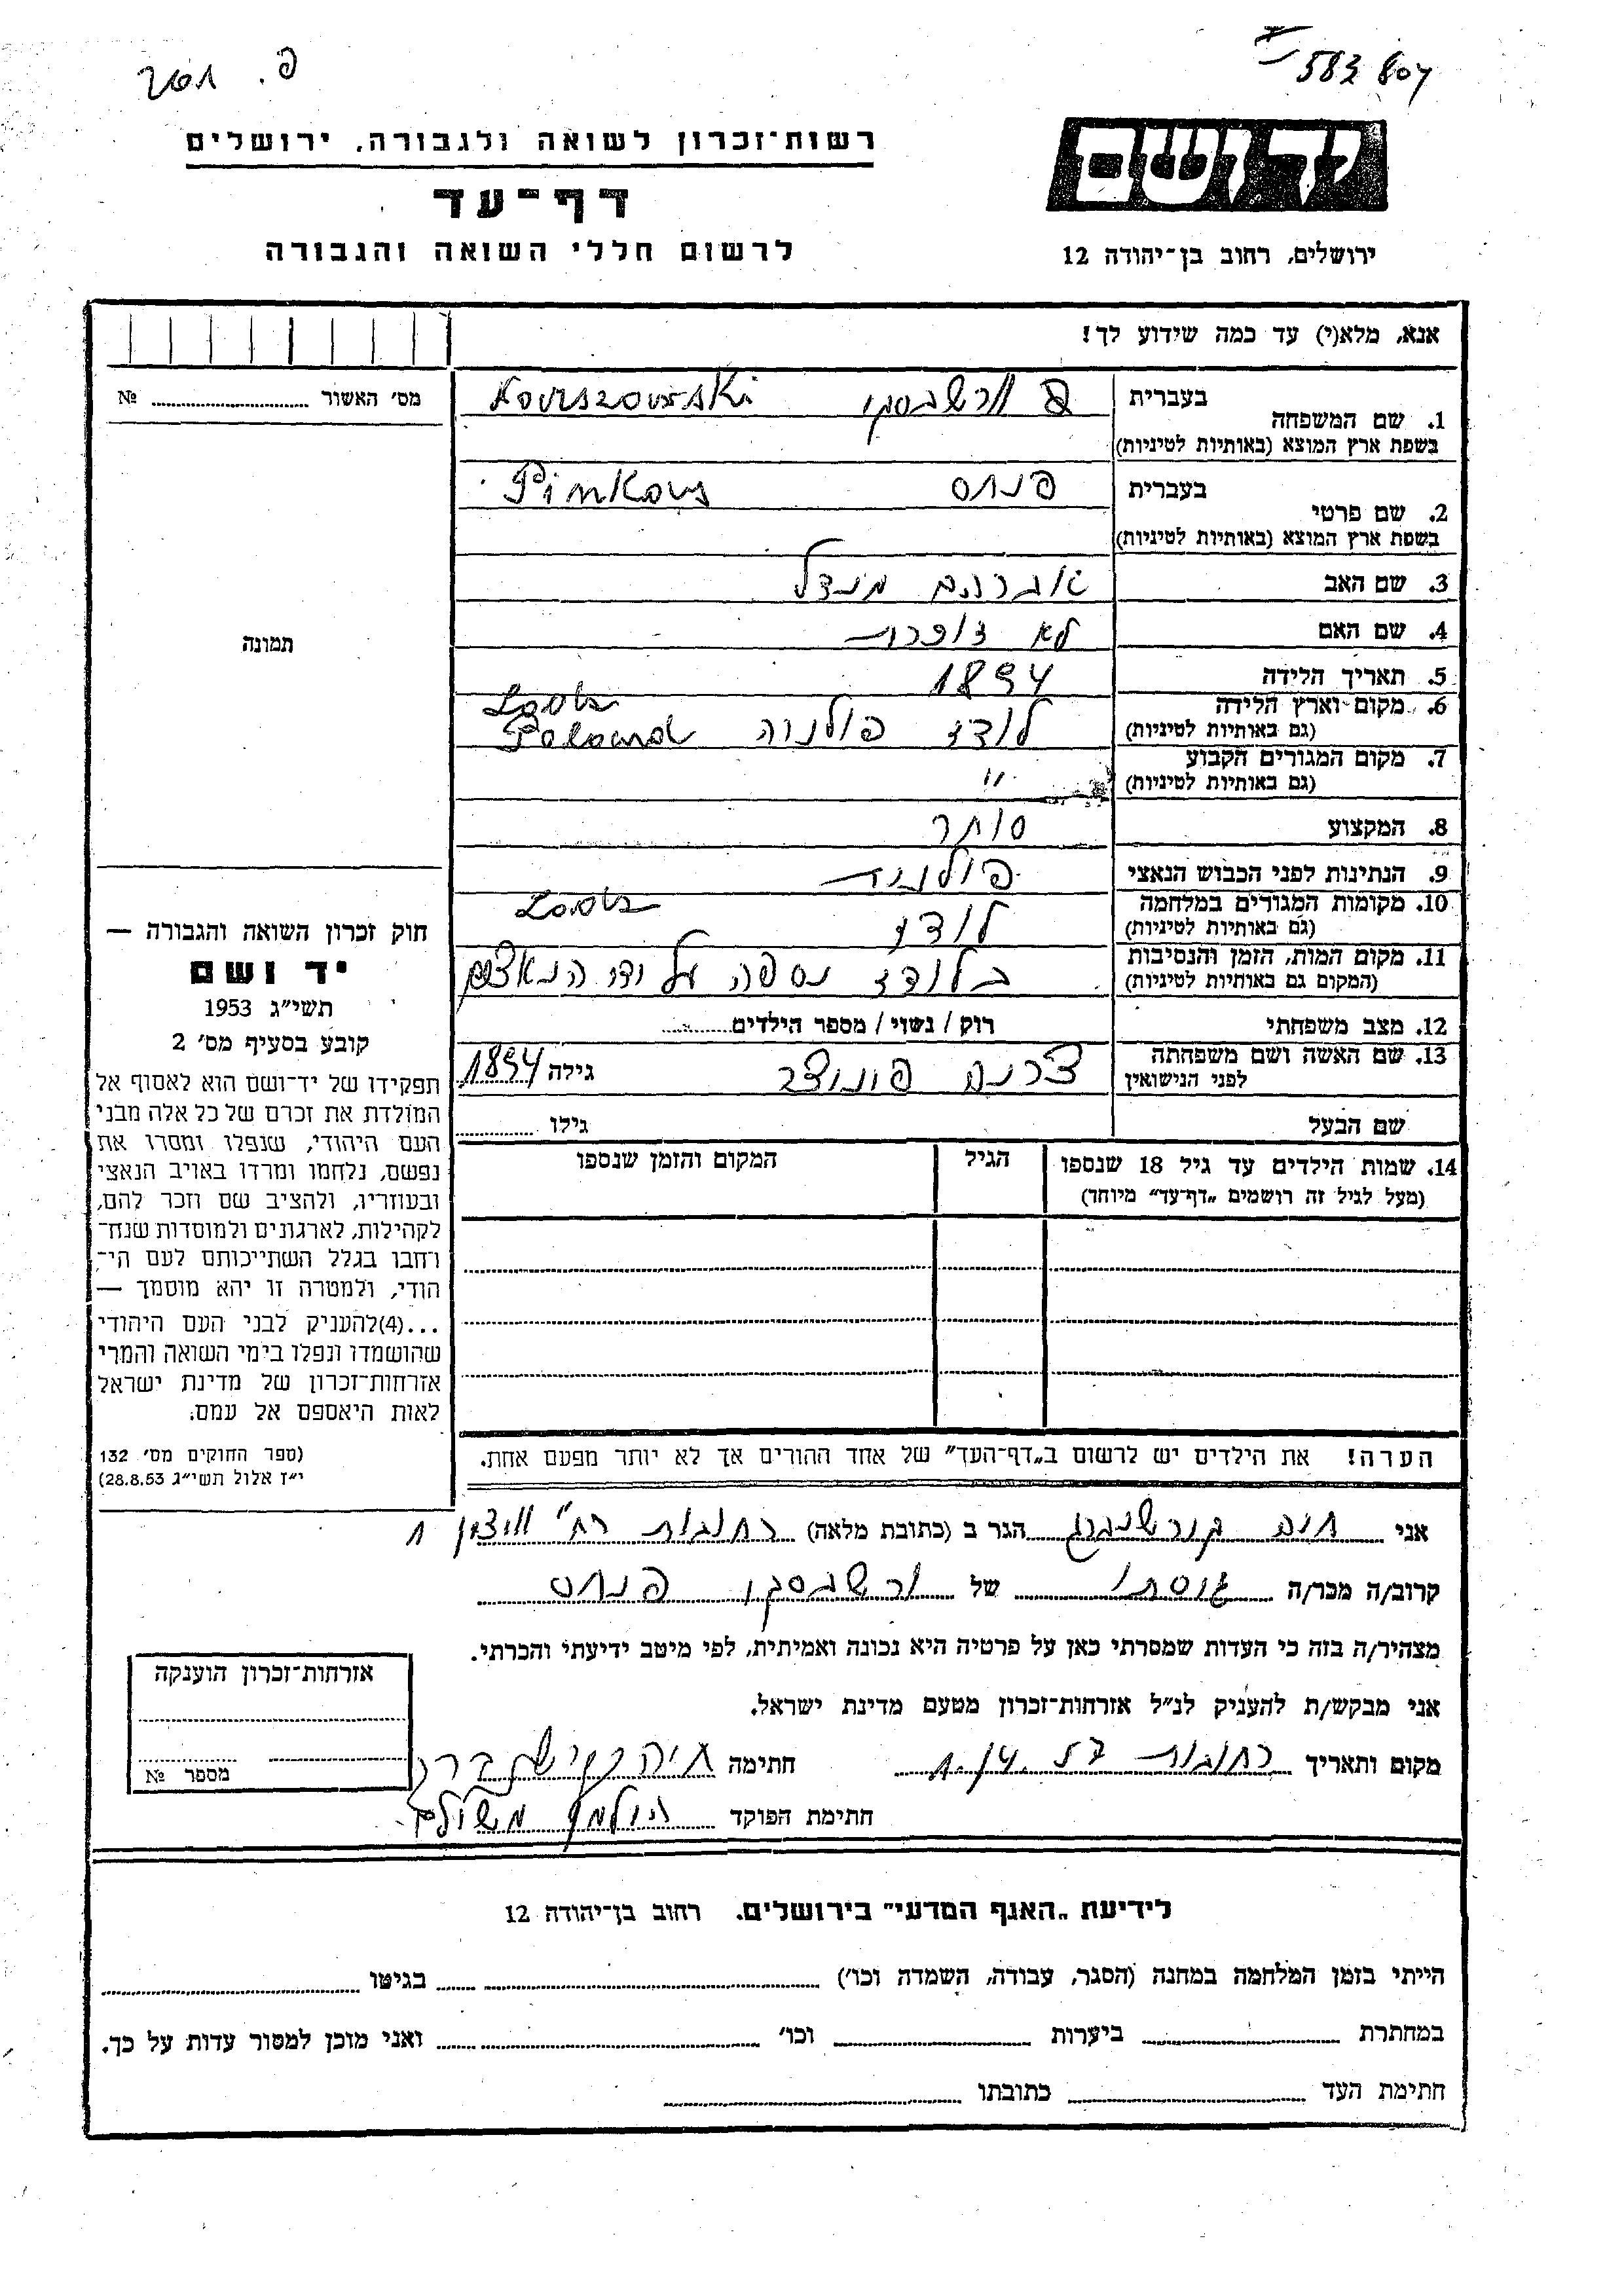 583 804
רשות־זכרון לשואה ולגבורה, ירושלים
דף־עד
לרשום חללי השואה והגבורה
יד ושם
ירושלים, רחוב בן־יהודה 12
אנא, מלא(י) עד כמה שידוע לך!
מס׳ האשור № ............
בעברית
1. שם המשפחה
בשפת ארץ המוצא (באותיות לטיניות)
בעברית פנחס Pinkous
2. שם פרטי
בשפת ארץ המוצא (באותיות לטיניות)
3. שם האב אברהם מנדל
4. שם האם לא זוכרת
5. תאריך הלידה 1894
6. מקום וארץ הלידה לודז פולניה Lodz Poland
(גם באותיות לטיניות)
7. מקום המגורים הקבוע "
(גם באותיות לטיניות)
8. המקצוע סוחר
9. הנתינות לפני הכבוש הנאצי פולנית
10. מקומות המגורים במלחמה לודז Lodz
(גם באותיות לטיניות)
11. מקום המות, הזמן והנסיבות בלודז נספה על ידי הנאצים
(המקום גם באותיות לטיניות)
12. מצב משפחתי רוק / נשוי / מספר הילדים............
13. שם האשה ושם משפחתה גילה 1894
לפני הנישואין
שם הבעל גילו ............
14. שמות הילדים עד גיל 18 שנספו הגיל המקום והזמן שנספו
(מעל לגיל זה רושמים „דף־עד” מיוחד)
הערה! את הילדים יש לרשום ב„דף־העד” של אחד ההורים אך לא יותר מפעם אחת.
תמונה
חוק זכרון השואה והגבורה —
יד ושם
תשי״ג 1953
קובע בסעיף מס׳ 2
תפקידו של יד־ושם הוא לאסוף אל
המולדת את זכרם של כל אלה מבני
העם היהודי, שנפלו ומסרו את
נפשם, נלחמו ומרדו באויב הנאצי
ובעוזריו, ולהציב שם וזכר להם,
לקהילות, לארגונים ולמוסדות שנח־
רחבו בגלל השתייכותם לעם הי־
הודי, ולמטרה זו יהא מוסמך —
...(4)להעניק לבני העם היהודי
שהושמדו ונפלו בימי השואה והמרי
אזרחות־זכרון של מדינת ישראל
לאות היאספם אל עמם.
(ספר החוקים מס׳ 132
י״ז אלול תשי״ג 28.8.53)
אני הגר ב (כתובת מלאה) רחובות רח״
קרוב/ה מכר/ה של פנחס
מצהיר/ה בזה כי העדות שמסרתי כאן על פרטיה היא נכונה ואמיתית, לפי מיטב ידיעתי והכרתי.
אני מבקש/ת להעניק לנ״ל אזרחות־זכרון מטעם מדינת ישראל.
מקום ותאריך רחובות חתימה
חתימת הפוקד
אזרחות־זכרון הוענקה
מספר №
לידיעת „האגף המדעי” בירושלים, רחוב בן־יהודה 12
הייתי בזמן המלחמה במחנה (הסגר, עבודה, השמדה וכו׳) ............ בגיטו ............
במחתרת ............ ביערות ............ וכו׳ ............ ואני מוכן למסור עדות על כך.
חתימת העד ............ כתובתו ............